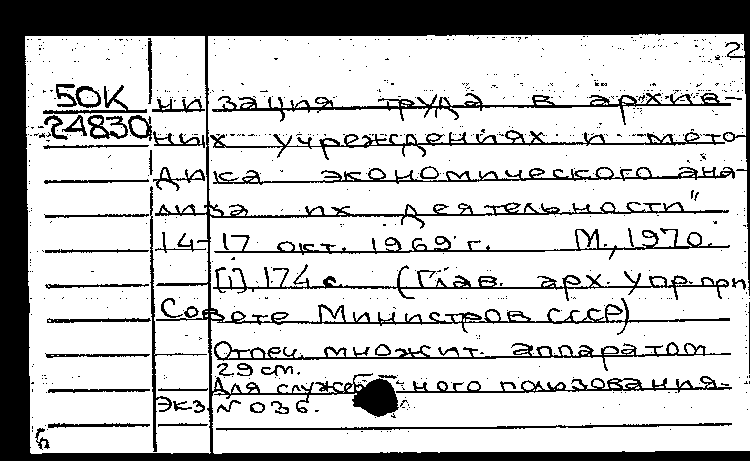 2
50К
24830
низация труда в архив-
ных учреждениях и мето-
дика экономического ана-
лиза их деятельности"
14-17 окт. 1969 г. М., 1970.
[1], 174 с. (Глав. арх. упр. при
Совете Министров СССР)
Отпеч. множит. аппаратом
29 см.
Для служебного пользования.
Экз. № 036.